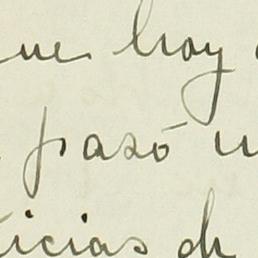 que hoy
pasó un
ticias de